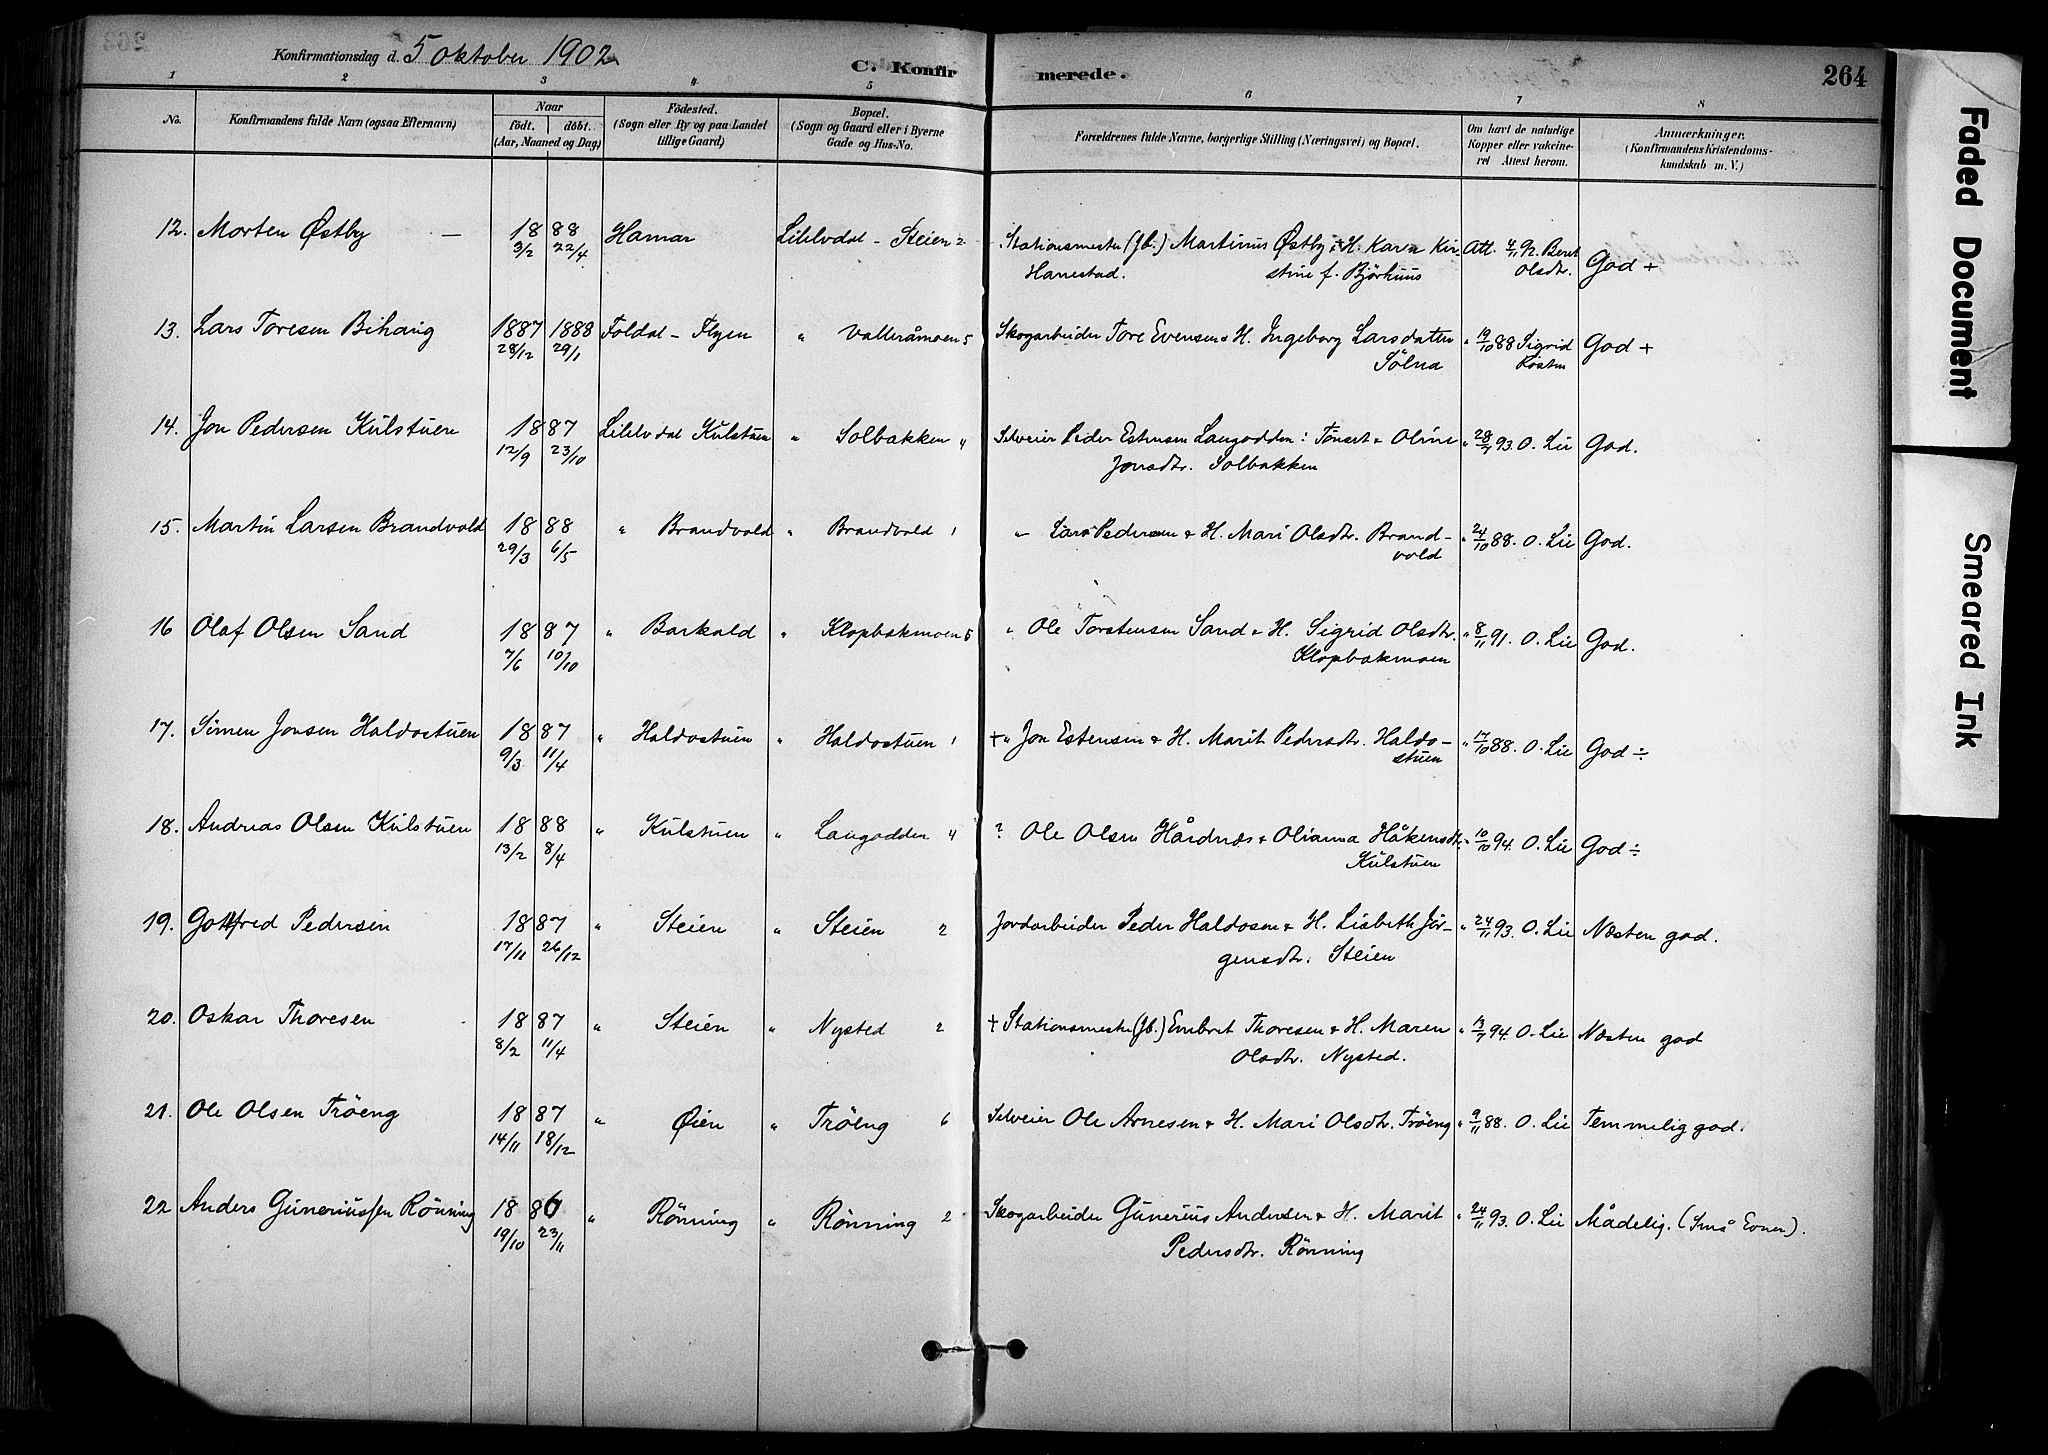 Konfirmationsdag d. 5 oktober 1902
C. Konfirmerede.
264
1 2 3 4 5 6 7 8
No.
Konfirmandens fulde Navn (ogsaa Efternavn)
Naar
födt. döbt.
(Aar, Maaned og Dag)
Födested.
(Sogn eller By og paa Landet
tillige Gaard)
Bopæl.
(Sogn og Gaard eller i Byerne
Gade og Hus-No.
Forældrenes fulde Navne, borgerlige Stilling (Næringsvei) og Bopæl.
Om havt de naturlige
Kopper eller vakcine-
ret Attest herom.
Anmærkninger.
(Konfirmandens Kristendoms-
kundskab m. V.)
12. Morten Østby — 1888 Hamar Lilelvdal - Steien 2 Stationsmester (Jb.) Martinus Østby & H. Karen Kir- Att. Beret God +
3/2 22/4 Hanestad. stine f. Björhuus Olsdtr.
13. Lars Toresen Bihang 1887 1888 Foldal - Flyen " Valleråmoen 5 Skogarbeider Tore Evensen & H. Ingeborg Larsdatter " 19/10 88 Sigrid God +
28/12 29/1 Sölna Rösten
14. Jon Pedersen Kulstuen 1887 Lilelvdal Kulstuen " Solbakken " Selveier Peder Estensen Langodden i Tönset & Oline " 93. O. Lie God.
12/9 23/10 Jonsdtr. Solbakken
15. Martin Larsen Brandvold 1888 " Brandvold " Brandvold 1 " Lars Pedersen & H. Mari Olsdtr. Brand- " 24/10 88. O. Lie God.
29/3 6/5 vold
16 Olaf Olsen Sand 1887 " Barkald " Klopbakmoen 5 " Ole Torstensen Sand & H. Sigrid Olsdtr. " 8/11 91. O. Lie God.
7/6 10/10 Klopbakmoen
17. Simen Jonsen Haldostuen 1887 " Haldostuen " Haldostuen 1 + " Jon Estensen & H. Marit Pedersdtr. Haldo- " 17/10 88. O. Lie God ÷
9/3 11/4 stuen
18. Andreas Olsen Kulstuen 1888 " Kulstuen " Langodden 4 ? Ole Olsen Hårdnæs & Olianna Håkensdtr. " 10/10 94. O. Lie God ÷
13/2 8/4 Kulstuen
19. Gottfred Pedersen 1887 " Steien " Steien 2 Jordarbeider Peder Haldosen & H. Lisbeth Jör- " 24/11 93. O. Lie Næsten god.
17/11 26/12 gensdtr. Steien
20. Oskar Thoresen 1887 " Steien " Nysted 2 + Stationsmester (Jb.) Embret Thoresen & H. Maren " 94. O. Lie Næsten god
8/2 11/4 Olsdtr. Nysted.
21. Ole Olsen Tröeng 1887 " Øien " Tröeng 6 Selveier Ole Arnesen & H. Mari Olsdtr. Tröeng " 9/11 88. O. Lie Temmelig god.
14/11 18/12
22 Anders Gunerius​sen Rönning 1886 " Rönning " Rönning 2 Skogarbeider Gunerius Andersen & H. Marit " 24/11 93. O. Lie Mådelig. (Små Evner).
19/10 23/11 Pedersdtr. Rönning
Faded Document
Smeared Ink